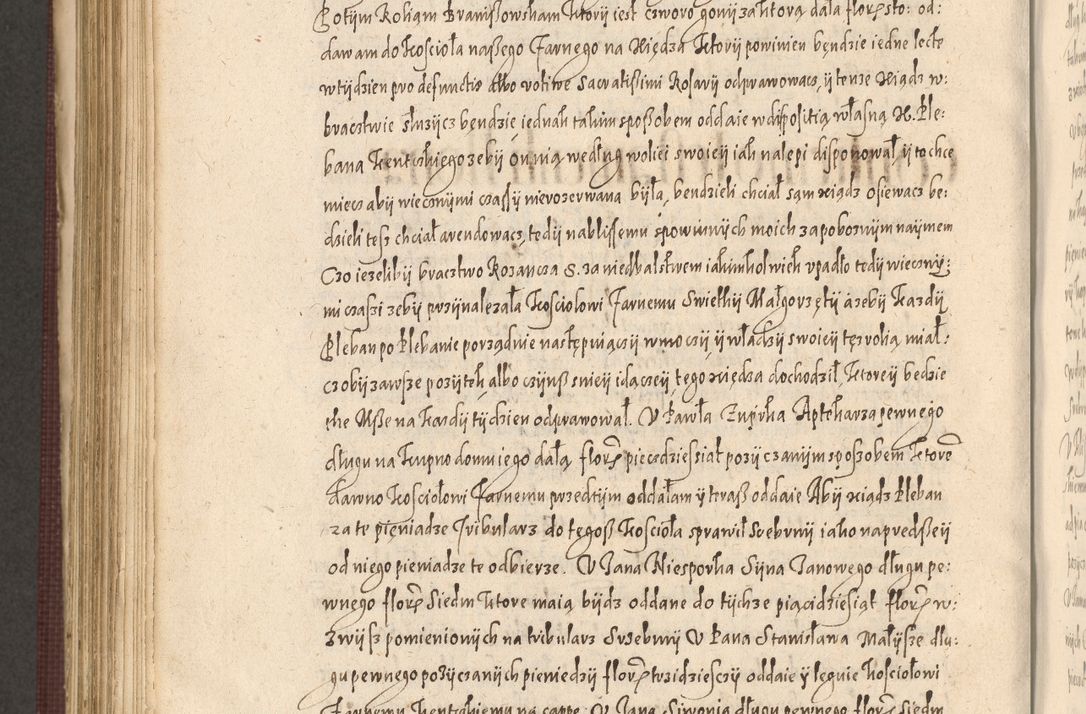 Potÿm Roliąm Braniſſowskam ktorÿ iest czworo gonÿ za ktorą dała florp sto: od:
dawam do kosciola naſſego Farnego na Xiędza ktorÿ powinien bęndzie iedne lecte
w tÿdzien pro defunctis albo votiwe Sacratiſſimi Rosarÿ odprawowacz, ÿ tenze xiądz w:
bractwie słuzÿcz bendzie iednak takim spoſſobem oddaie w dispositią własną X. Ple:
bana Kentczkiego zebÿ on nią według woliei swoieÿ iak nalepi disponował ÿ to chcę
miecz abÿ wiecznÿmi czassÿ nierozerwana bÿła, bendzieli chciał sąm xiądz osiewacz be:
dzieli tesz chciał arendowacz, tedÿ nabliſſemu spowinnÿch moich za poboznÿm naÿmem
Czo iezelibÿ bractwo Rozancza S. za niedbalstwem iakimkolwiek vpadło tedÿ wiecznÿ:
mi czaſſi zebÿ przÿnalezała kosciołowi Farnemu Swietkÿ Małgorzętÿ á zebÿ kazdÿ
Pleban po Plebanie porządnie następuiączÿ w moczÿ ÿ władzÿ swoieÿ tę rolią miał:
czobÿ zawsze pozÿtek, albo czÿnsz snieÿ idączeÿ, tego xiędza dochodził, ktoreÿ bedzie
the Mſſe na kazdÿ tÿdzien odprawował. V Pawła Zuprka Aptekarza pewnego
długu na kupno domu iego dałą florp piecdziesiat pozÿczanÿm spoſſobem ktore
dawno kosciołowi Farnemu przedtÿm oddałam ÿ teraſſ oddaie Abÿ xiądz Pleban
za te pieniadze Tribularz do tegoſſ kosciola sprawił srebrnÿ iako napredſſeÿ
od niego pieniadze te odbierze. V Jana Niesporka Sÿna Janowego długu pe:
wnego florp Siedm ktore maią bÿdz oddane do tÿchze piącidziesiąt florp w:
zwÿsz pomienionÿch na tribularz Srzebrnÿ V Pana Stanisława Małÿsze dlu:
gu pewnego pozÿczanÿch pieniedzÿ florp trzidziesczÿ oddaie ÿ leguie kosciołowi
Farnemu Kentczkiemu na cappe. V Jana Siwonia długu pewnego florp Siedm